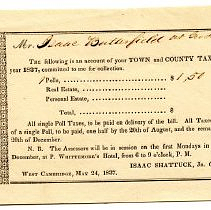 Mr. Isaac Butterfield
The following is an account of your TOWN and COUNTY TAX
year 1837, committed to me for collection.
Polls, $1,50
Real Estate,
Personal Estate,
$
All single Poll Taxes, to be paid on delivery of the bill. All Taxes
of a single Poll, to be paid, one half by the 20th of August, and the rema
20th of December.
N. B. The Assessors will be in session on the first Mondays in
December, at P. WHITTEMORE'S Hotel, from 6 to 9 o'clock, P. M.
ISAAC SHATTUCK, JR. C
WEST CAMBRIDGE, MAY 24, 1837.